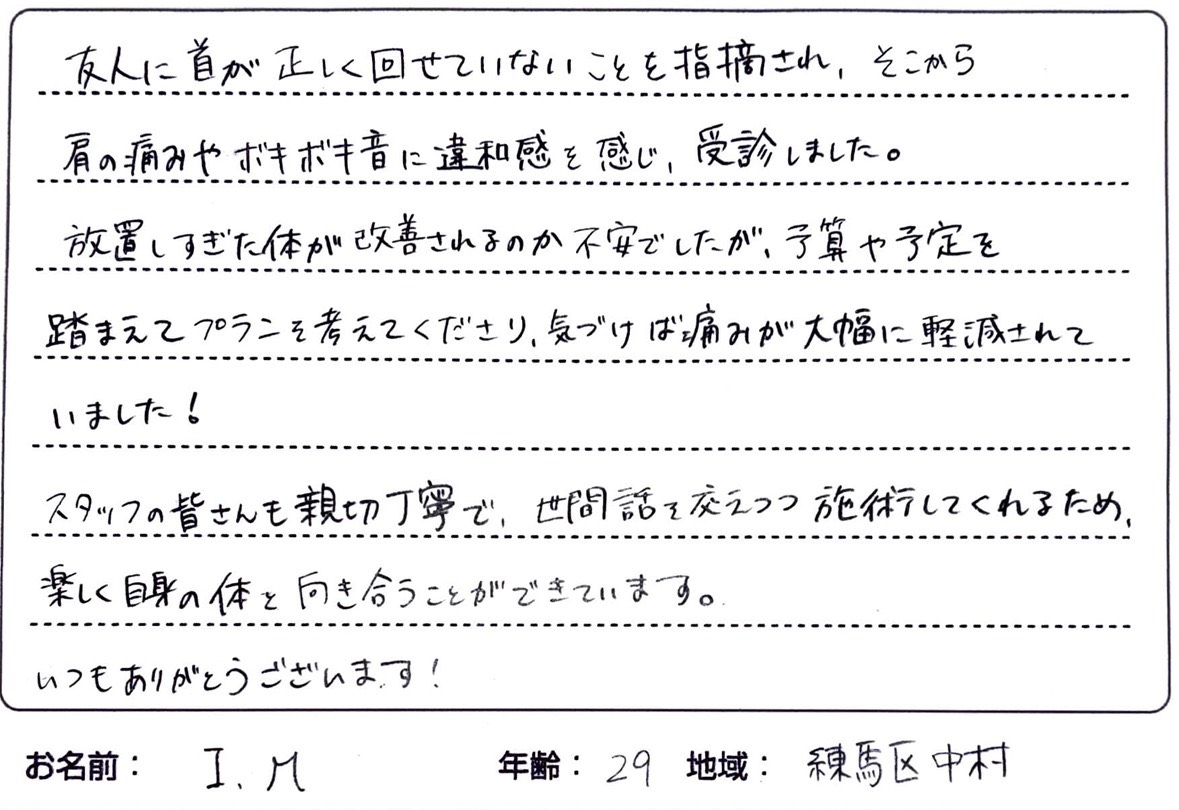 友人に首が正しく回せていないことを指摘され、そこから
肩の痛みやボキボキ音に違和感を感じ、受診しました。
放置しすぎた体が改善されるのか不安でしたが、予算や予定を
踏まえてプランを考えてくださり、気づけば痛みが大幅に軽減されて
いました！
スタッフの皆さんも親切丁寧で、世間話を交えつつ施術してくれるため、
楽しく自身の体と向き合うことができています。
いつもありがとうございます！
お名前： I.M 年齢： 29 地域： 練馬区中村